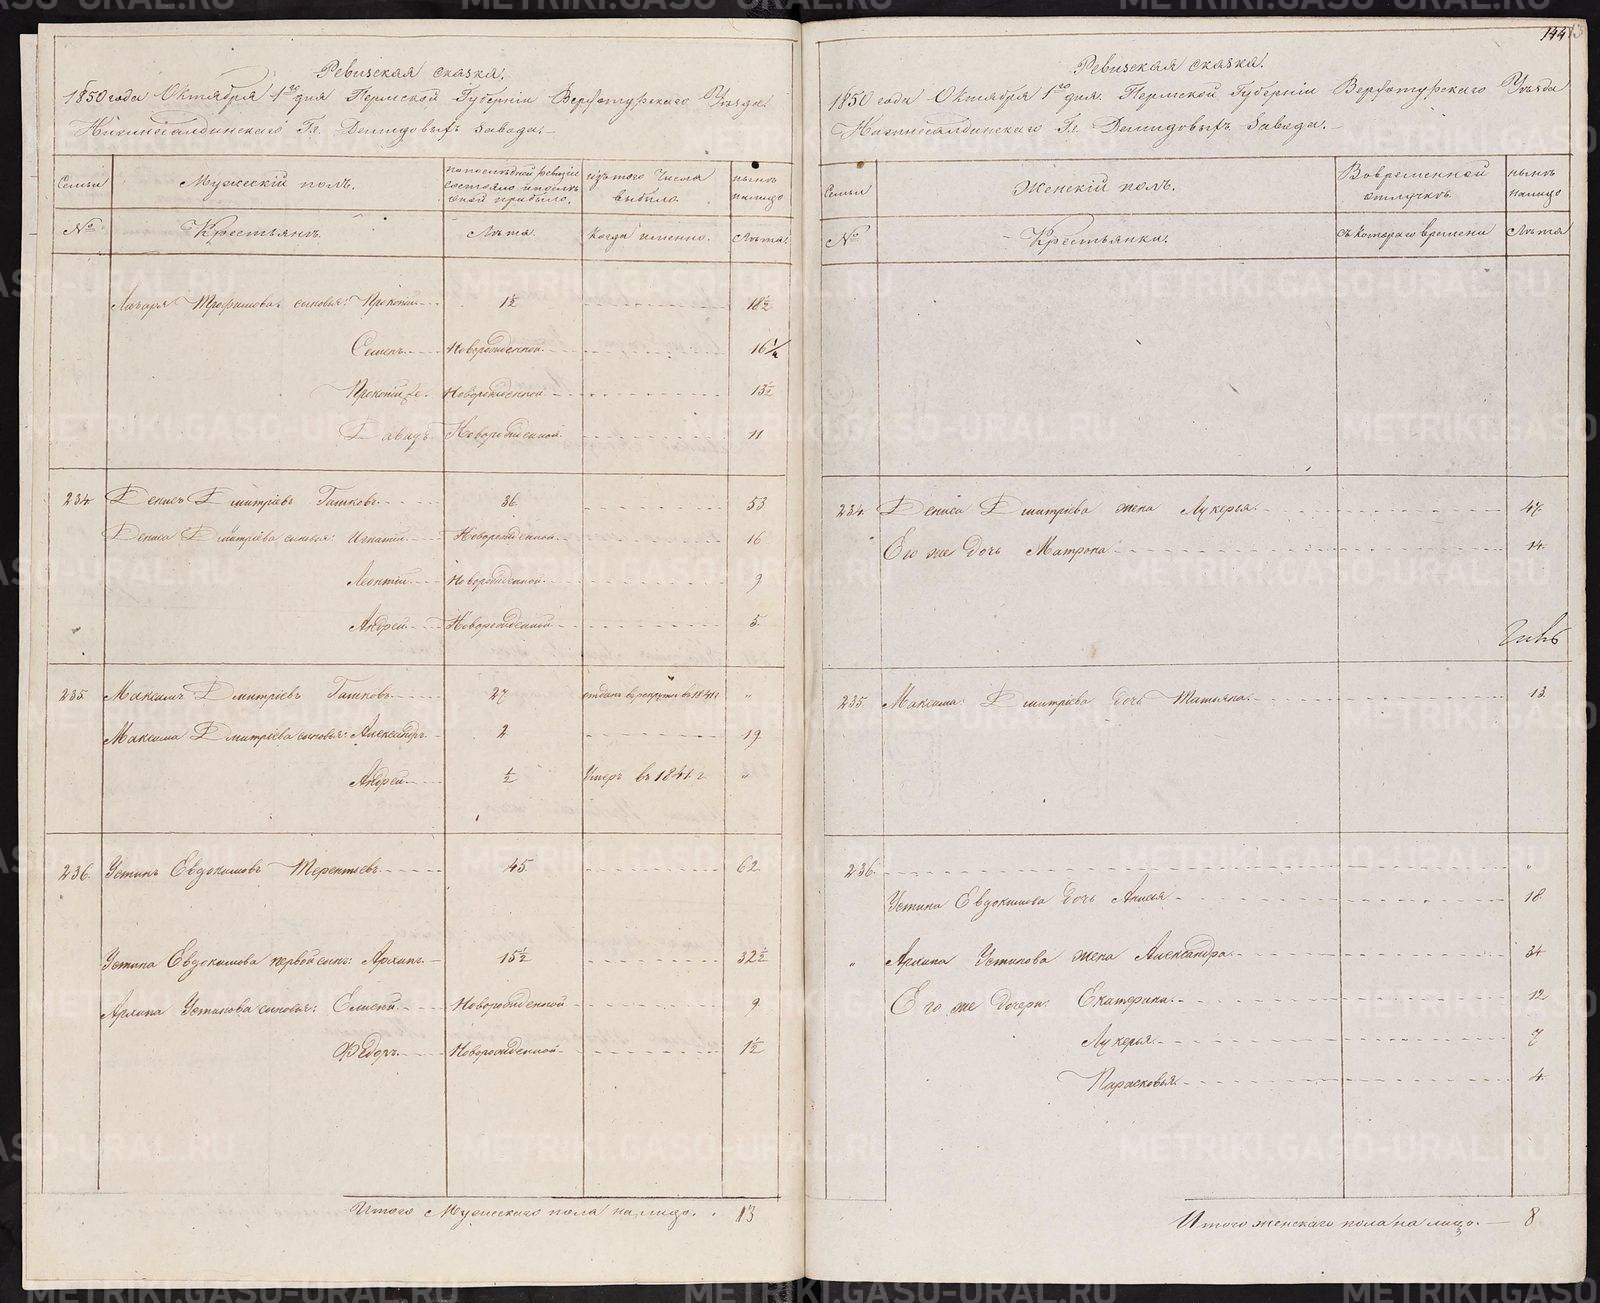 Ревизская сказка.
1850 года Октября 1го дня Пермской Губернiи Верхотурскаго Уѣзда
Нижнесалдинскаго Гг. Демидовыхъ завода.
Семьи
Мужескiй полъ.
по последней ревизiи состояло и послѣ оной прибыло.
изъ того числа выбыло
нынѣ налицо
№
Крестьянъ.
Лѣта.
Когда именно.
Лѣта.
Лазаря Трофимова сыновья: Прокопiй 1½ 18½
Семенъ Новорожденной 16½
Прокопiй 2й. Новорожденной 13½
Давидъ Новорожденной 11
234. Денисъ Дмитрiевъ Гашковъ 36 53
Дениса Дмитрiева сыновья: Игнатiй Новорожденной 16
Леонтiй Новорожденной 9
Андрей Новорожденной 5
235 Максимъ Дмитрiевъ Гашковъ 27 отданъ в рекруты въ 1841 г "
Максима Дмитрiева сыновья: Александръ 2 19
Андрей ½ Умеръ въ 1841 г "
236. Устинъ Евдокимовъ Терентьевъ 45. 62
Устина Евдокимова первой сынъ: Архипъ 15½ 32½
Архипа Устинова сыновья: Елисей Новорожденной 9
Ѳедоръ Новорожденной 1½
Итого Мужескаго пола налицо. 13
144
Ревизская сказка.
1850 года Октября 1го дня. Пермской Губернiи Верхотурскаго Уѣзда
Нижнесалдинскаго Гг. Демидовыхъ завода.
Семьи
Женскiй полъ.
Во временной отлучкѣ.
нынѣ налицо
№
Крестьянки.
съ котораго времени
Лѣта
234. Дениса Дмитрiева жена Лукерья 47
Его же дочь Матрона 14
235 Максима Дмитрiева дочь Татьяна 13
236. "
Устина Евдокимова дочь Анисья 18
" Архипа Устинова жена Александра 34
Его же дочери: Екатерина 12
Лукерья 7
Парасковья 4
Итого женскаго пола на лицо. 8
METRIKI.GASO-URAL.RU